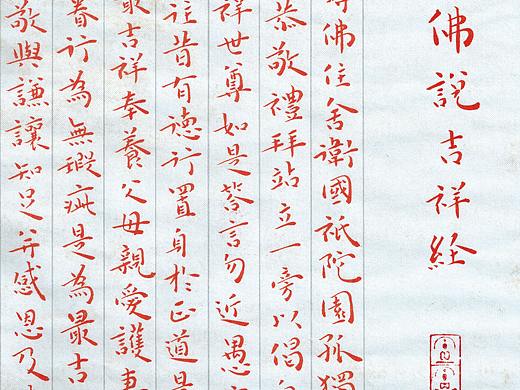 佛說吉祥経
佛住舍衛國祇陀園孤獨
恭敬禮拜站立一旁以偈
祥世尊如是答言勿近愚
住昔有德行置自於正道是
最吉祥奉養父母親愛護妻
眷行為無瑕疵是為最吉
敬與謙讓知足并感恩及